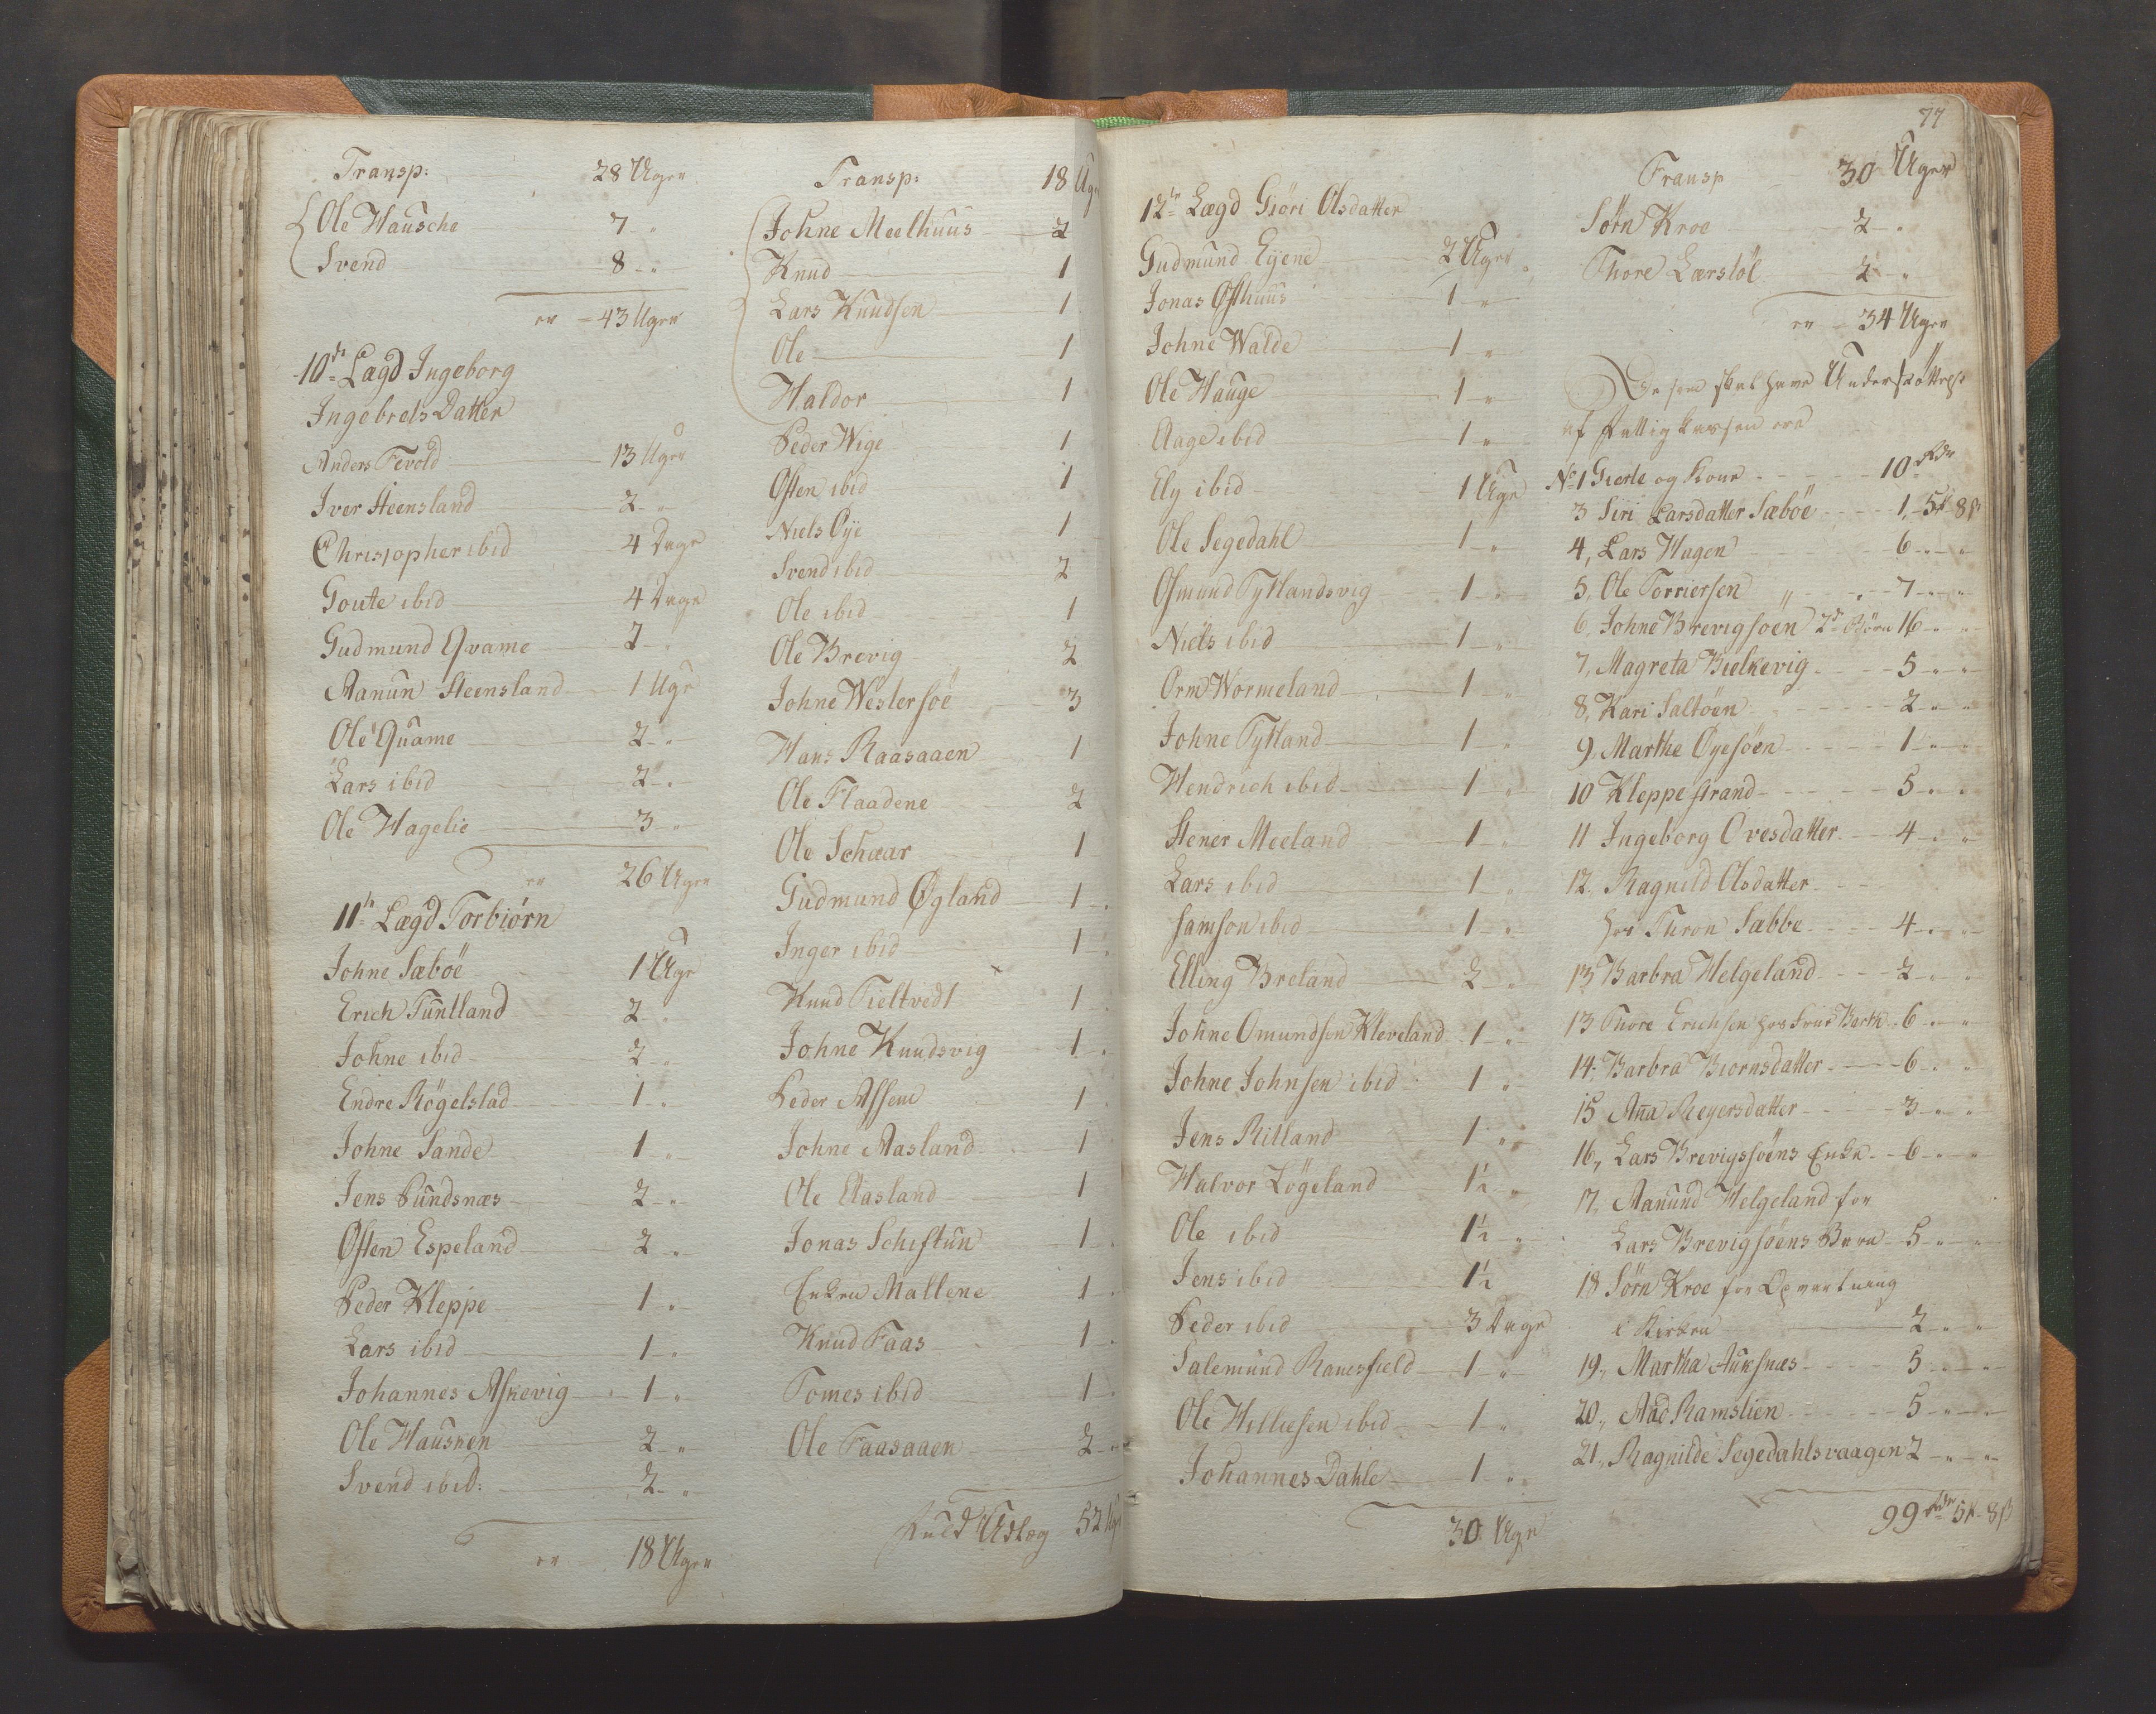 Transp: 28 Uger
Ole Hausche 7 "
Svend 8 "
er 43 Uger
10de Lægd Ingeborg
Ingebrets Datter
Anders Tevold 13 Uger
Iver Steensland 2 "
Christopher ibid 4 Dage
Goute ibid 4 Dage
Gudmund Qvame 2 "
Aanun Steensland 1 Uge
Ole Quame 2 "
Lars ibid 2 "
Ole Hagelie 3 "
er 26 Uger
11te Lægd Torbiørn
Johne Sæböe 1 Uge
Erich Tuntland 2 "
Johne ibid 2 "
Endre Rögelstad 1 "
Johne Sande 1 "
Jens Pundsnæs 2 "
Østen Espeland 2 "
Peder Kleppe 1 "
Lars ibid 1 "
Johannes Askevig 1 "
Ole Hausken 2 "
Svend ibid: 2 "
er 18 Uger
Transp: 18 Uger
Johne Meelhuus 2
Knud 1
Lars Knudsen 1
Ole 1
Haldor 1
Peder Wige 1
Østen ibid 1
Niels Øÿe 1
Svend ibid 2
Ole ibid 1
Ole Brevig 2
Johne Westersöe 3
Hans Raasaaen 1
Ole Flaadene 2
Ole Schaar 1
Gudmund Øgland 1
Inger ibid 1
Knud Tieltvedt 1
Johne Knudsvig 1
Peder Assene 1
Johne Aasland 1
Ole Aasland 1
Jonas Schiftun 1
Enken Mallene 1
Knud Faas 1
Tomes ibid 1
Ole Faasaaen 2
Fuld Udlæg 52 Uger
77
12te Lægd Giöri Olsdatter
Gudmund Eyene 2 Uger
Jonas Østhuus 1 "
Johne Walde 1 "
Ole Hauge 1 "
Aage ibid 1 "
Ely ibid 1 Uge
Ole Segedahl 1 "
Osmund Tytlandsvig 1 "
Niels ibid 1 "
Orm Wormeland 1 "
Johne Tytland 1 "
Hendrich ibid 1 "
Stener Meeland 1 "
Lars ibid 1 "
Samson ibid 1 "
Elling Breland 2 "
Johne Omundsen Kleveland 1 "
Johne Johnsen ibid 1 "
Jens Ritland 1 "
Halvor Lögeland 1½ "
Ole ibid 1½ "
Jens ibid 1½
Peder ibid 3 Dage
Salemund Ramsfield 1 "
Ole Helliesen ibid 1 "
Johannes Dahle 1 "
30 Uge
Transp 30 Uger
Sørn Kroe 2 "
Thore Lærstöl 2 "
er 34 Uger
De som skal have Understöttelse
af Fattigkassen ere
No 1 Gierle og Kone 10 Rdr
3 Siri Larsdatter Sæböe 1, 5 8ß
4, Lars Hagen 6 " "
5, Ole Torriersen 7 " "
6, Johne Brevigsöen 2de Börn 16 " "
7, Magreta Bielkevig 5 " "
8, Kari Saltöen 2 " "
9, Marthe Øyesöen 1 " "
10 Kleppe strand 5 " "
11 Ingeborg Ovesdatter 4 " "
12. Ragnild Olsdatter
hos Thron Sæbbe 4 " "
13 Barbra Helgeland 2 " "
13 Thore Erichsen hos Frue Barth 6 " "
14. Barbra Biornsdatter 6 " "
15 Aña Reyersdatter 3 " "
16, Lars Brevigsöens Enke 6 " "
17, Aanund Helgeland for
Lars Brevigsöens Børn 5 " "
18 Sörn Kroe for Opvartning
i Kirken 2 " "
19., Martha Aursnæs 5 " "
20., Aad Ramslien 5 " "
21., Ragnilde Segedahlsvaagen 2 " "
99 Rdr 5 8ß